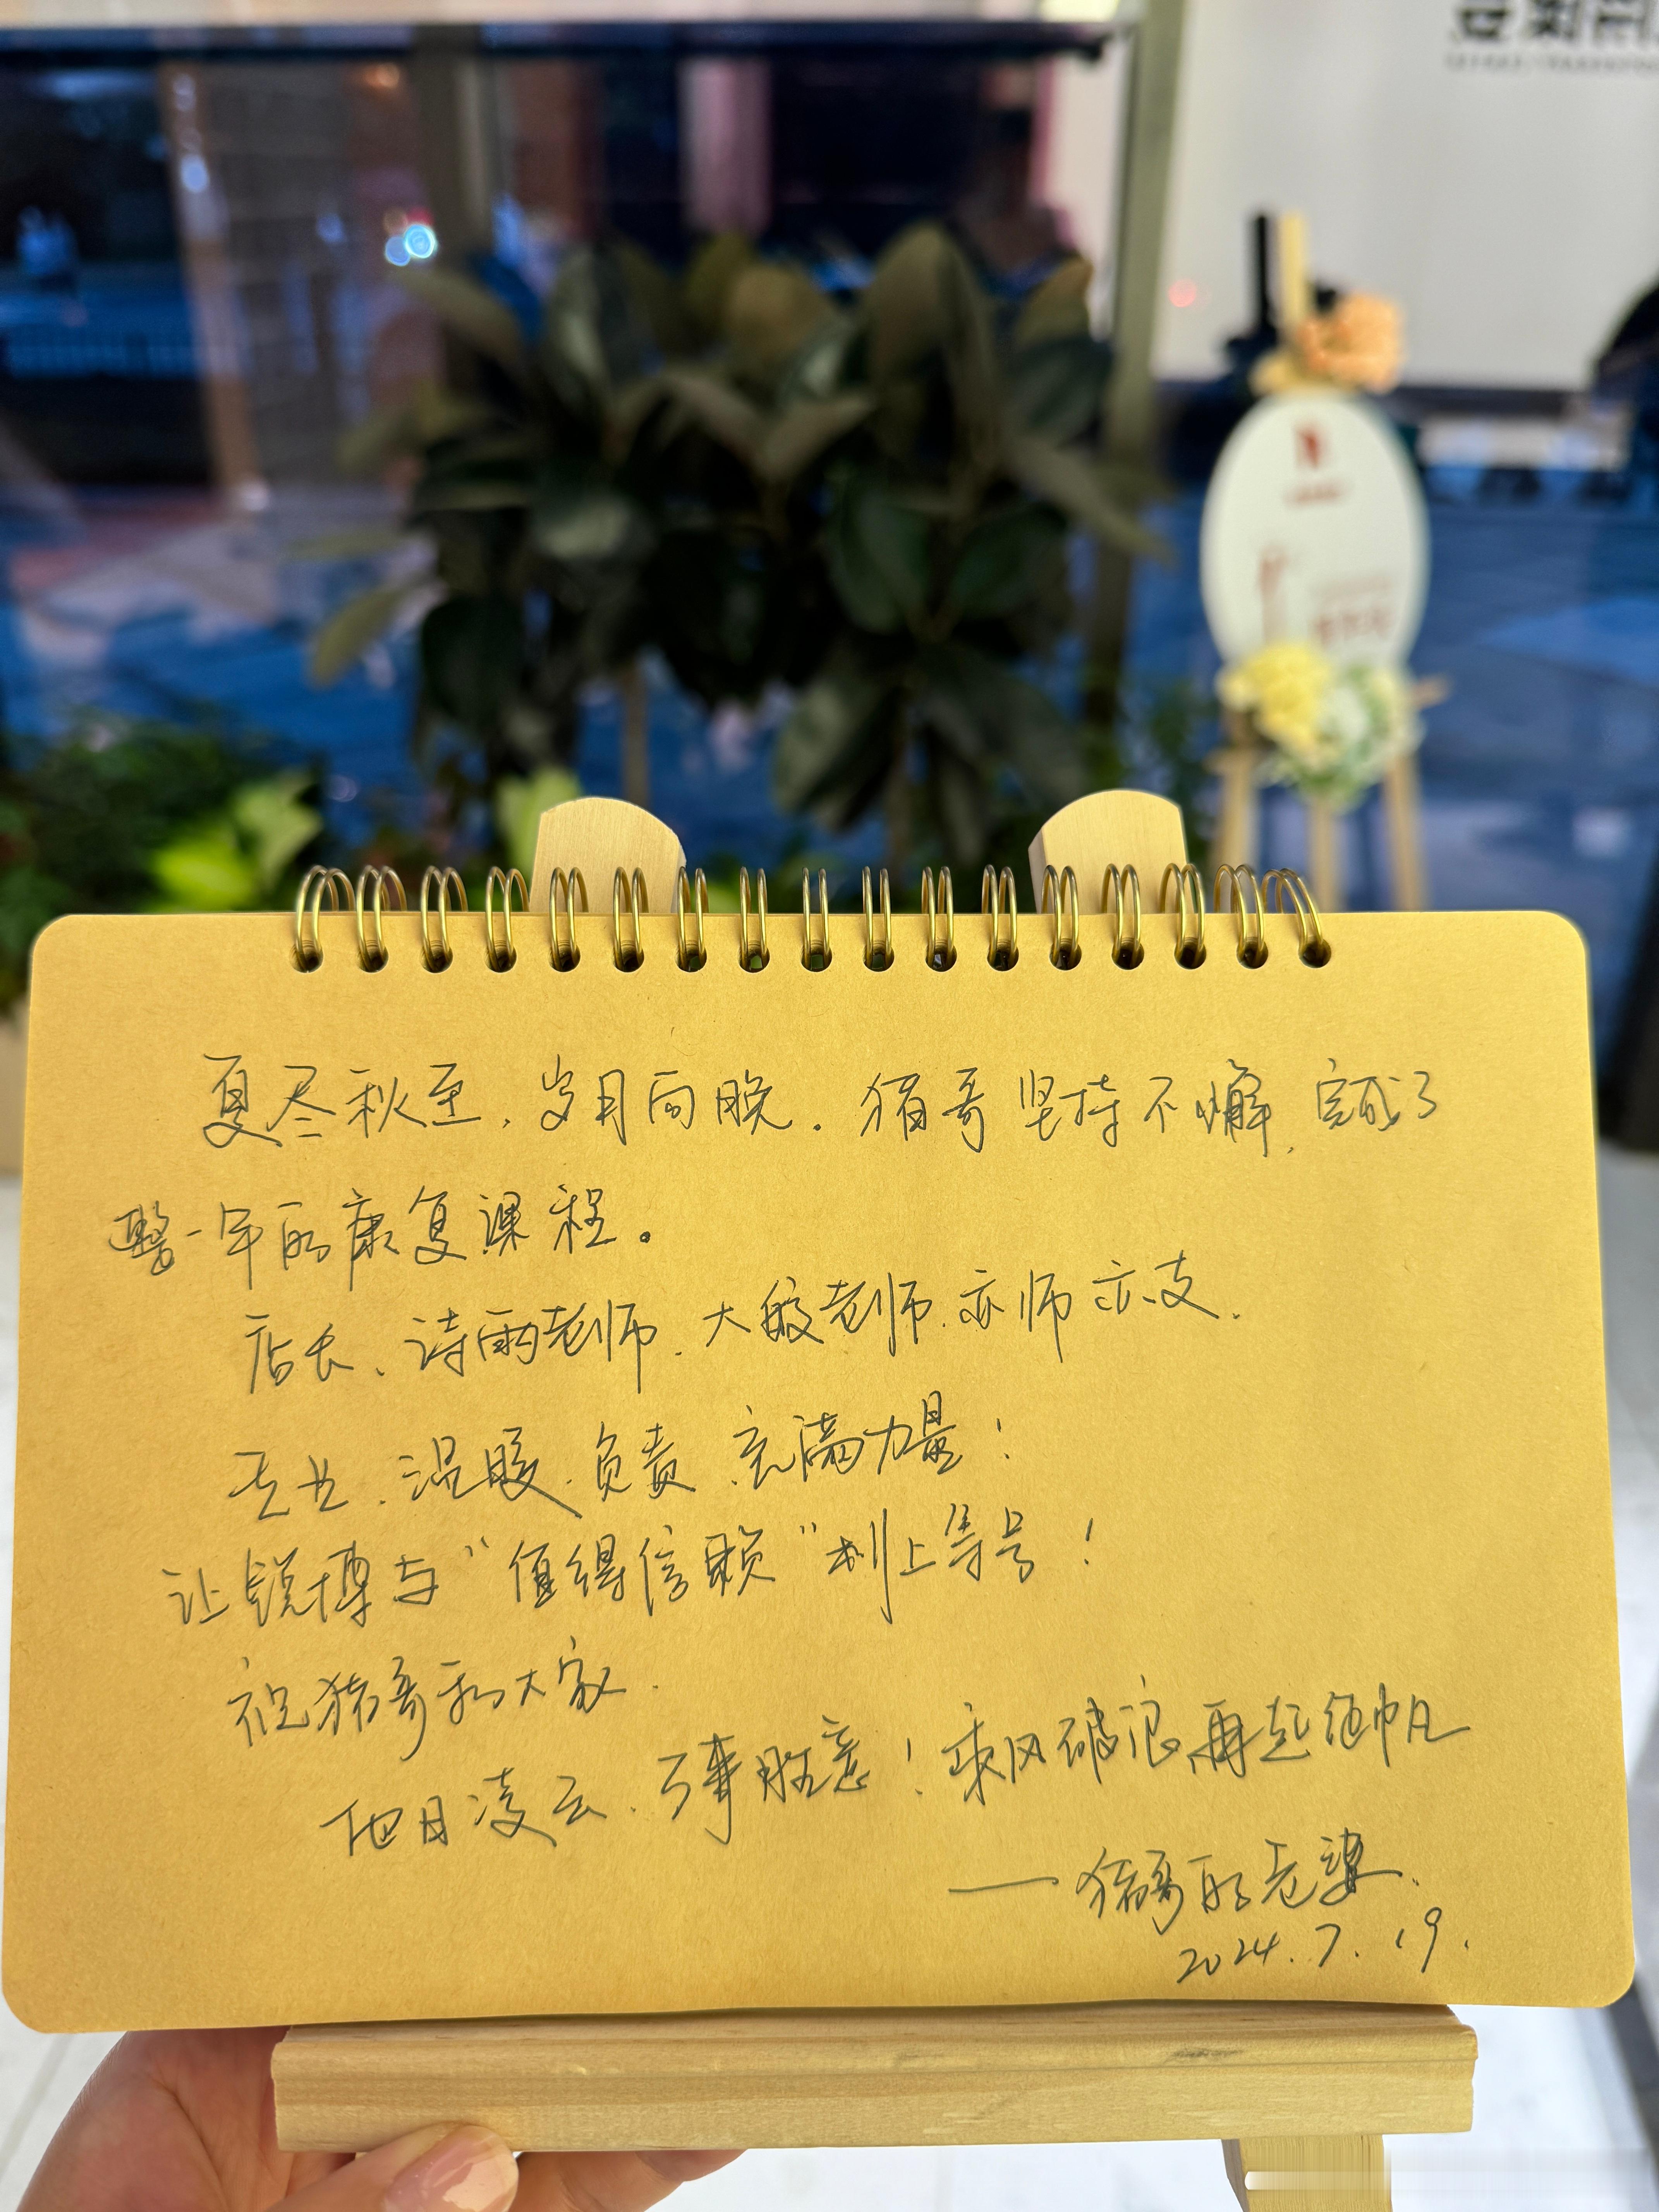 夏尽秋至，岁月向晚。猪哥坚持不懈，完成了
整一年的康复课程。
店长、诗雨老师、大俊老师，亦师亦友，
专业、温暖、负责、充满力量！
让锐博与“值得信赖”划上等号！
祝猪哥和大家，
他日凌云，万事胜意！乘风破浪，再起征帆
——猪哥的老婆
2024.7.19.